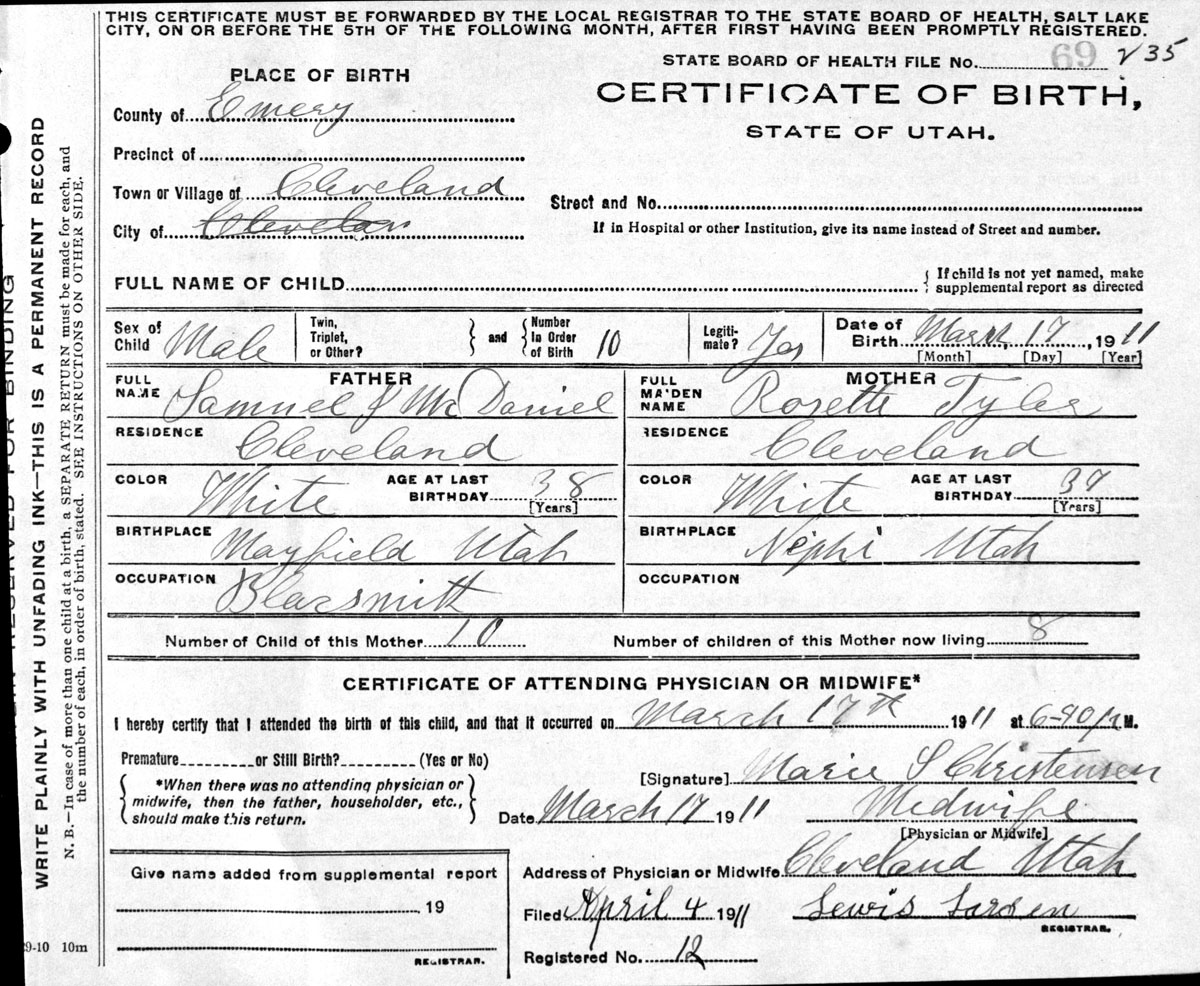 THIS CERTIFICATE MUST BE FORWARDED BY THE LOCAL REGISTRAR TO THE STATE BOARD OF HEALTH, SALT LAKE
CITY, ON OR BEFORE THE 5TH OF THE FOLLOWING MONTH, AFTER FIRST HAVING BEEN PROMPTLY REGISTERED.
STATE BOARD OF HEALTH FILE No. 69 235
PLACE OF BIRTH
CERTIFICATE OF BIRTH,
STATE OF UTAH.
County of Emery
Precinct of
Town or Village of Cleveland
Street and No.
City of Clevelan
If in Hospital or other Institution, give its name instead of Street and number.
FULL NAME OF CHILD
{ If child is not yet named, make
supplemental report as directed
Sex of Child Male
Twin, Triplet, or Other? } and { Number In Order of Birth 10
Legiti-mate? Yes
Date of Birth March 17, 1911
[Month] [Day] [Year]
FATHER
FULL NAME Samuel J McDaniel
MOTHER
FULL MA'DEN NAME Rosetta Tyler
RESIDENCE Cleveland
RESIDENCE Cleveland
COLOR White AGE AT LAST BIRTHDAY 38 [Years]
COLOR White AGE AT LAST BIRTHDAY 37 [Years]
BIRTHPLACE Mayfield Utah
BIRTHPLACE Nephi Utah
OCCUPATION Blacsmith
OCCUPATION
Number of Child of this Mother 10 Number of children of this Mother now living 8
CERTIFICATE OF ATTENDING PHYSICIAN OR MIDWIFE*
I hereby certify that I attended the birth of this child, and that it occurred on March 17th 1911 at M.
Premature or Still Birth? (Yes or No)
{ *When there was no attending physician or
midwife, then the father, householder, etc.,
should make this return. }
[Signature] Marie S Christensen
Date March 17 1911 Midwife
[Physician or Midwife]
Address of Physician or Midwife Cleveland Utah
Filed April 4 1911 Lewis Larsen
REGISTRAR.
Registered No. 12
Give name added from supplemental report
19
REGISTRAR.
RESERVED FOR BINDING
WRITE PLAINLY WITH UNFADING INK—THIS IS A PERMANENT RECORD
N. B.—In case of more than one child at a birth, a SEPARATE RETURN must be made for each, and
the number of each, in order of birth, stated. SEE INSTRUCTIONS ON OTHER SIDE.
9-10 10m